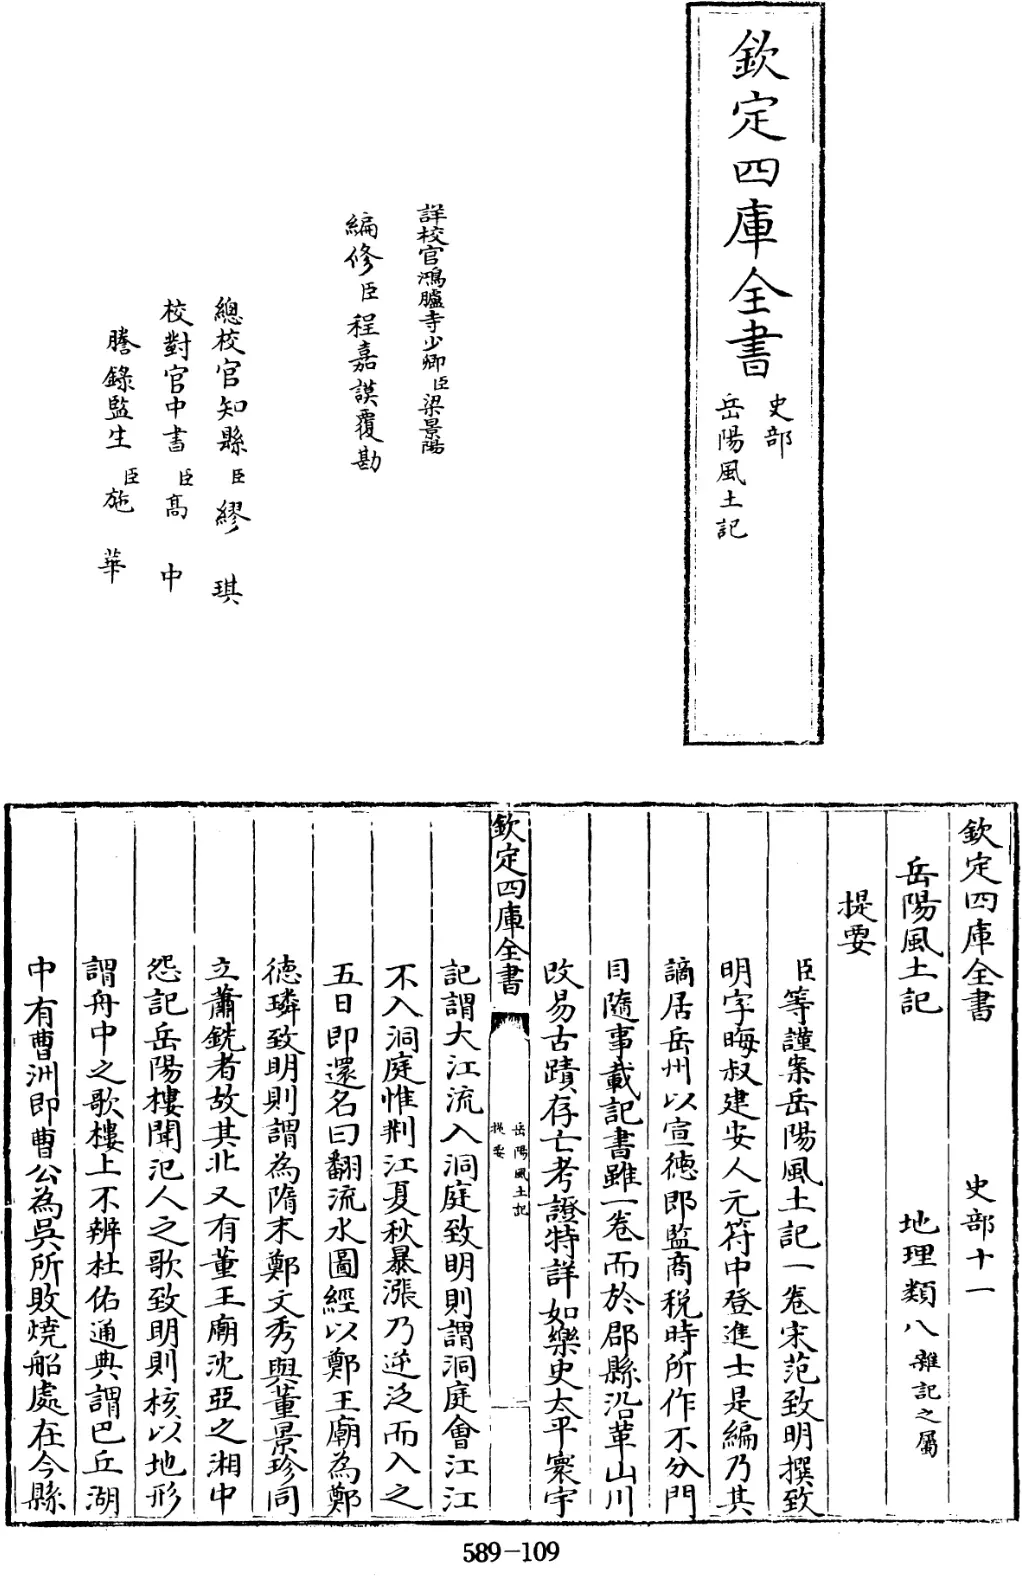 欽定四庫全書
史部
岳陽風土記
詳校官鴻臚寺少卿臣梁景陽
編修臣程嘉謨覆勘
總校官知縣臣繆琪
校對官中書臣高中
謄錄監生臣施華
欽定四庫全書 史部十一
岳陽風土記 地理類八雜記之屬
提要
臣等謹案岳陽風土記一卷宋范致明撰致
明字晦叔建安人元符中登進士是編乃其
謫居岳州以宣德郎監商稅時所作不分門
目隨事載記書雖一卷而於郡縣沿革山川
改易古蹟存亡考證特詳如樂史太平寰宇
欽定四庫全書
岳陽風土記
提要
記謂大江流入洞庭致明則謂洞庭會江江
不入洞庭惟荆江夏秋暴漲乃逆泛而入之
五日即還名曰翻流水圖經以鄭王廟為鄭
德璘致明則謂為隋末鄭文秀與董景珍同
立蕭銑者故其北又有董王廟沈亞之湘中
怨記岳陽樓聞氾人之歌致明則核以地形
謂舟中之歌樓上不辨杜佑通典謂巴丘湖
中有曹洲即曹公為吳所敗燒船處在今縣
589-109